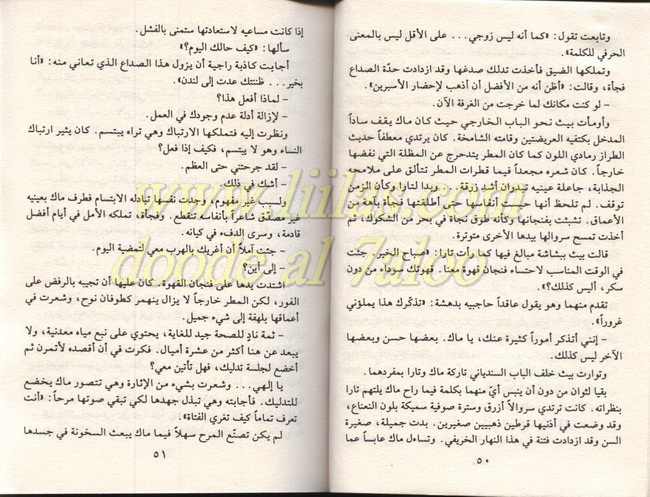 وتابعت تقول: «كما أنه ليس زوجي... على الأقل ليس بالمعنى
الحرفي للكلمة».
وتملكها الضيق فأخذت تدلك صدغها وقد ازدادت حدّة الصداع
فجأة، وقالت: «أظن أنه من الأفضل أن أذهب لإحضار الأسبرين».
– لو كنت مكانك لما خرجت من الغرفة الآن.
وأومأت بيث نحو الباب الخارجي حيث كان ماك يقف ساداً
المدخل بكتفيه العريضتين وقامته الشامخة. كان يرتدي معطفاً حديث
الطراز رمادي اللون كما كان المطر يتدحرج عن المظلة التي نفضها
خارجاً. كان شعره مجعداً فيما قطرات المطر تتألق على ملامحه
الجذابة، جاعلة عينيه تبدوان أشد زرقة. وبدا لتارا وكأن الزمن
توقف. لم تلحظ أنها حبست أنفاسها حتى أطلقتها فجأة بآهة من
الأعماق. تشبثت بفنجانها وكأنه طوق نجاة في بحر من الشكوك، ثم
أخذت تمسح سروالها بيدها الأخرى متوترة.
قالت بيث ببشاشة مبالغ فيها كما رأت تارا: «صباح الخير. جئت
في الوقت المناسب لاحتساء فنجان قهوة معنا. قهوتك سوداء من دون
سكر، أليس كذلك؟».
تقدم منهما وهو يقول عاقداً حاجبيه بدهشة: «تذكّرك هذا يملؤني
غروراً».
– إنني أتذكر أموراً كثيرة عنك، يا ماك. بعضها حسن وبعضها
الآخر ليس كذلك.
وتوارت بيث خلف الباب السندياني تاركة ماك وتارا بمفردهما.
بقيا لثوان من دون أن ينبس أيّ منهما بكلمة فيما راح ماك يلتهم تارا
بنظراته. كانت ترتدي سروالاً أزرق وسترة صوفية سميكة بلون النعناع،
وقد وضعت في أذنيها قرطين ذهبيين صغيرين. بدت جميلة، صغيرة
السن وقد ازدادت فتنة في هذا النهار الخريفي. وتساءل ماك عابساً عما
٥٠
إذا كانت مساعيه لاستعادتها ستمنى بالفشل.
سألها: «كيف حالك اليوم؟»
أجابت كاذبة راجية أن يزول هذا الصداع الذي تعاني منه: «أنا
بخير... ظننتك عدت إلى لندن».
– لماذا أفعل هذا؟
– لإزالة أدلة عدم وجودك في العمل.
ونظرت إليه فتملكها الارتباك وهي تراه يبتسم. كان يثير ارتباك
النساء وهو لا يبتسم، فكيف إذا فعل؟
– لقد جرحتني حتى العظم.
– أشك في ذلك.
ولسبب غير مفهوم، وجدت نفسها تبادله الابتسام فطرف ماك بعينيه
غير مصدّق شاعراً بأنفاسه تتقطع. وفجأة، تملكه الأمل في أيام أفضل
قادمة، وسرى الدفء في كيانه.
– جئت آملاً أن أغريك بالهرب معي لتمضية اليوم.
– إلى أين؟
اشتدت يدها على فنجان القهوة. كان عليها أن تجيبه بالرفض على
الفور، لكن المطر خارجاً لا يزال ينهمر كطوفان نوح، وشعرت في
أعماقها بلهفة إلى شيء جميل.
– ثمة نادٍ للصحة جيد للغاية، يحتوي على نبع مياه معدنية، ولا
يبعد عن هنا أكثر من عشرة أميال. فكرت في أن أقصده لأتمرن ثم
أخضع لجلسة تدليك، فهل تأتين معي؟
يا إلهي... وشعرت بشيء من الإثارة وهي تتصور ماك يخضع
للتدليك. فأجابته وهي تبذل جهدها لكي تبقي صوتها مرحاً: «أنت
تعرف تماماً كيف تغري الفتاة».
لم يكن تصنّع المرح سهلاً فيما ماك يبعث السخونة في جسدها
٥١
www.liilas.com
dooda.al 7aloo